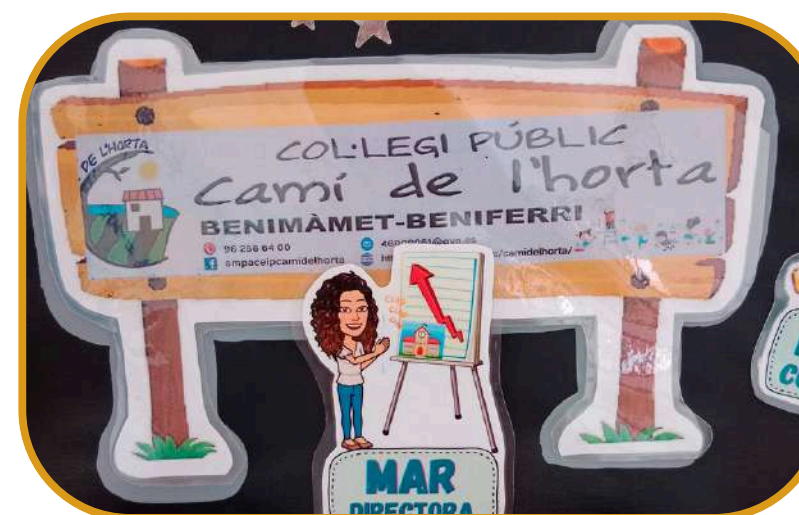 DE L'HORTA
COL·LEGI PÚBLIC
Camí de l'horta
BENIMÀMET-BENIFERRI
96 256 64 00
ampaceipcamidelhorta
/camidelhorta/
MAR
DIRECTORA